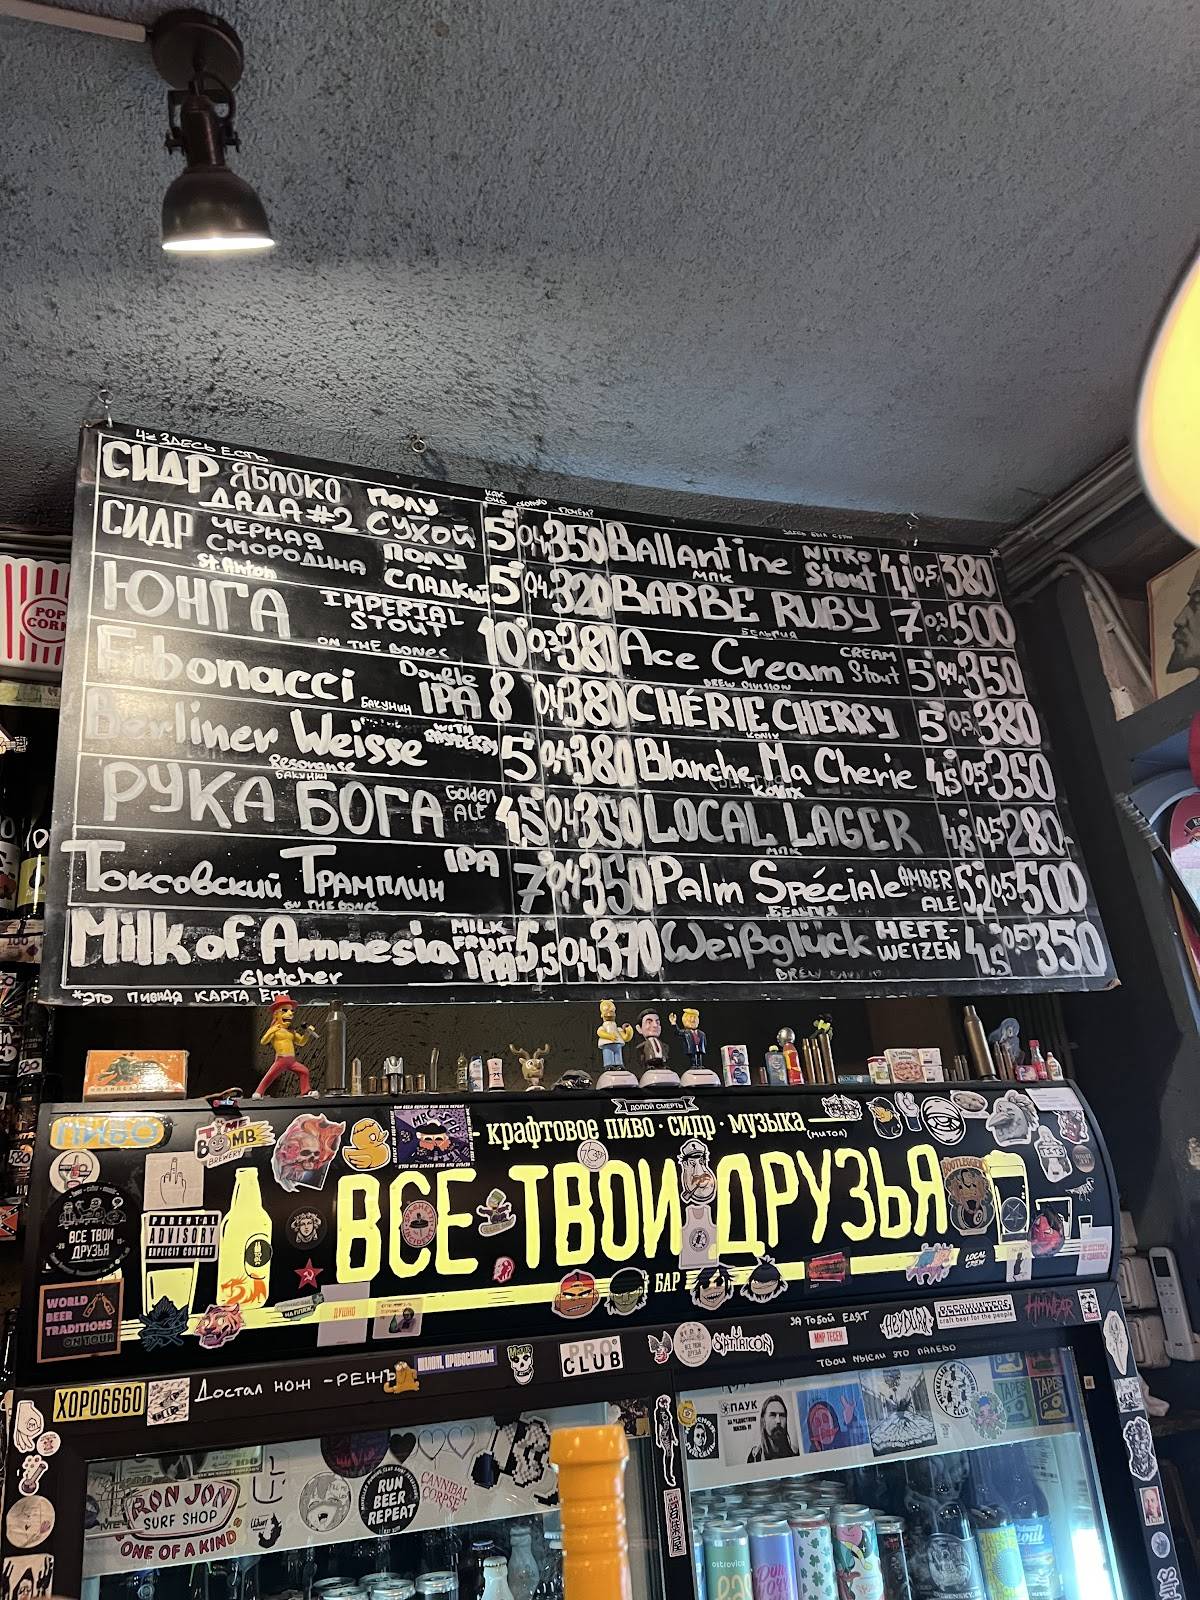 ЗДЕСЬ ЕСТЬ
СИДР ЯБЛОКО ДАДА #2 ПОЛУ СУХОЙ 5° 0,4 350
СИДР ЧЕРНАЯ СМОРОДИНА St. Anton ПОЛУ СЛАДКИЙ 5° 0,4 320
ЮНГА IMPERIAL STOUT ON THE BONES 10° 0,3 380
Fibonacci БАКУНИН Double IPA 8 0,4 380
Berliner Weisse Resonanse БАКУНИН WITH 5 0,4 380
РУКА БОГА Golden ALE 4,5 0,4 350
Токсовский Трамплин ON THE BONES IPA 7° 0,4 350
Milk of Amnesia Gletcher MILK FRUIT IPA 5,5 0,4 370
*ЭТО ПИВНАЯ КАРТА
Ballantine МПК NITRO Stout 4,1 0,5 380
BARBE RUBY БЕЛЬГИЯ 7° 0,3 500
Ace Cream BREW DIVISION CREAM Stout 5° 0,4 350
CHÉRIE CHERRY KONIX 5° 0,5 380
Blanche Ma Cherie KONIX 4,5 0,5 350
LOCAL LAGER МПК 4,8 0,5 280
Palm Spéciale БЕЛЬГИЯ AMBER ALE 5,2 0,5 500
Weißglück HEFE-WEIZEN 4,5 0,5 350
POP CORN
ДОЛОЙ СМЕРТЬ
ПИВО
TIME BOMB BREWERY
крафтовое пиво · сидр · музыка
(митол)
ВСЕ ТВОИ ДРУЗЬЯ
БАР
PARENTAL ADVISORY EXPLICIT CONTENT
ВСЕ ТВОИ ДРУЗЬЯ
BOOTLEGGER
TITS
LOCAL CREW
ДУШНО
WORLD BEER TRADITIONS ON TOUR
BEERHUNTERS
craft beer for the people
ЗА ТОБОЙ ЕДЯТ
МИР ТЕСЕН
SATYRICON
PRO CLUB
ТВОИ МЫСЛИ ЭТО ПАЛЕВО
ХОР06660
Достал нож - РЕЖЬ
ПАУК
TAPES
TAPES
RON JON
SURF SHOP
ONE OF A KIND
RUN BEER REPEAT
CANNIBAL CORPSE
ostrovica